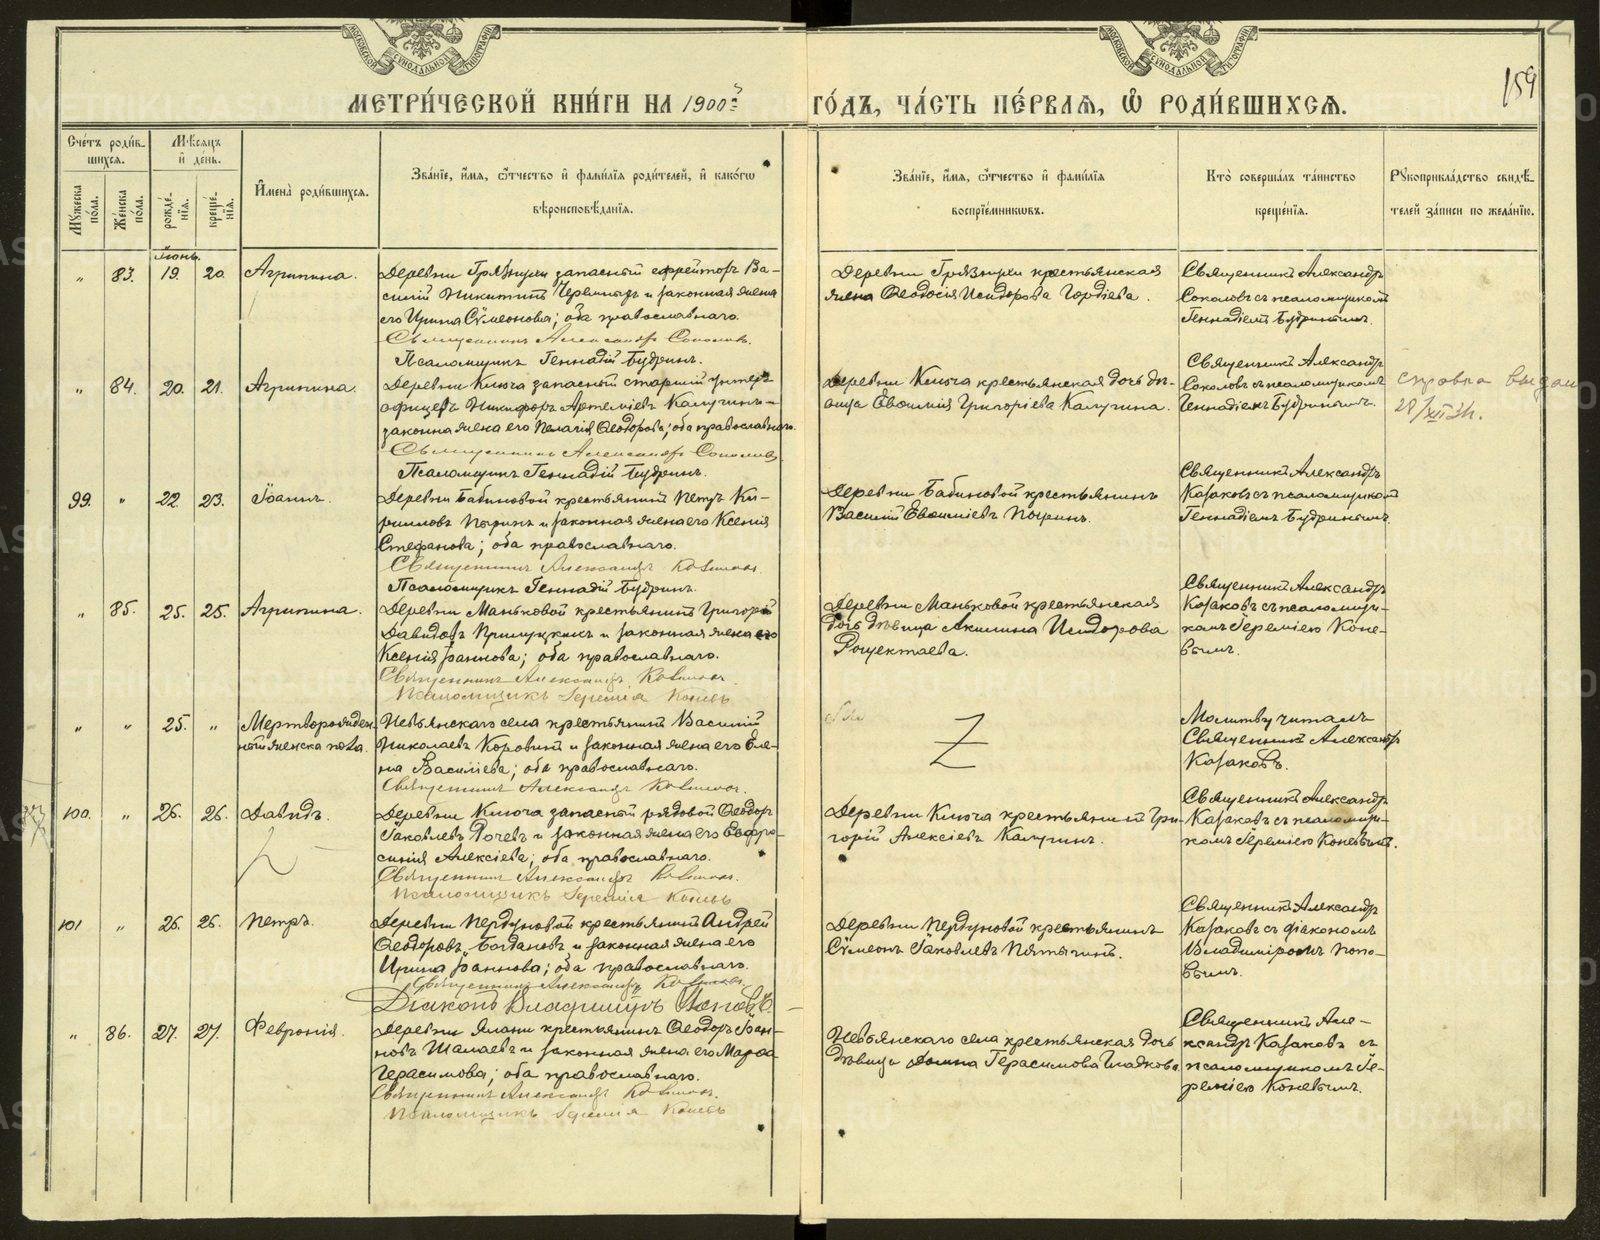 МОСКОВСКОЙ СѴНОДАЛЬНОЙ ТИПОГРАФІИ
МОСКОВСКОЙ СѴНОДАЛЬНОЙ ТИПОГРАФІИ
159
МЕТРИ́ЧЕСКОЙ КНИ́ГИ НА 1900й
ГО́ДЪ, ЧА́СТЬ ПЕ́РВАѦ, Ѡ҆ РОДИ́ВШИХСѦ.
Сче́тъ роди́в-
шихся.
Мѣсяцъ
и҆ де́нь.
Мꙋжеска по́ла.
Же́нска по́ла.
рожде́-
нїя.
креще́-
нїя.
И҆мена̀ роди́вшихся.
Зва́нїе, и҆́мя, ѻ҆́тчество и҆ фами́лїя роди́телей, и҆ како́гѡ
вѣроисповѣ́данїя.
Зва́нїе, и҆́мя, ѻ҆́тчество и҆ фами́лїя
воспрїе́мникѡвъ.
Кто̀ соверша́лъ та́инство
креще́нїя.
Рꙋкоприкла́дство свидѣ́-
телей за́писи по жела́нїю.
Іюнь.
„ 83. 19. 20. Агрипина.
Деревни Грязнухи запасный ефрейторъ Ва-
силій Никитинъ и законная жена
его Ирина Сѵмеонова; оба православнаго.
Священникъ Александръ Соколовъ.
Псаломщикъ Геннадій Будринъ.
Деревни Грязнухи крестьянская
жена Ѳеодосія Исидорова Гордіева.
Священникъ Александръ
Соколовъ съ псаломщикомъ
Геннадіемъ Будринымъ.
„ 84. 20. 21. Агрипина.
Деревни Ключа запасный старшій унтеръ
офицеръ Никифоръ Артеміевъ Калугинъ и
законна жена его Пелагія Ѳеодорова; оба православнаго.
Священникъ Александръ Соколовъ.
Псаломщикъ Геннадій Будринъ.
Деревни Ключа крестьянская дочь дѣ-
вица Евѳимія Григоріева Калугина.
Священникъ Александръ
Соколовъ съ псаломщикомъ
Геннадіемъ Будринымъ.
справка выдан
28/XII
99. „ 22. 23. Іоаннъ.
Деревни Бабиновой крестьянинъ Петръ Ки-
рилловъ и законная жена его Ксенія
Стефанова; оба православнаго.
Священникъ Александръ Казаковъ.
Псаломщикъ Геннадій Будринъ.
Деревни Бабиновой крестьянинъ
Василій Евѳиміевъ
Священникъ Александръ
Казаковъ съ псаломщикомъ
Геннадіемъ Будринымъ.
„ 85. 25. 25. Агрипина.
Деревни Маньковой крестьянинъ Григорій
Давидовъ и законная жена его
Ксенія Іоаннова; оба православнаго.
Священникъ Александръ Казаковъ.
Псаломщикъ Іеремія Коневъ
Деревни Маньковой крестьянская
дочь дѣвица Акилина Исидорова
Рощектаева.
Священникъ Александръ
Казаковъ съ псаломщи-
комъ Іереміею Коне-
вымъ.
„ „ 25. „ Мертворожден
ный женска пола.
Невьянскаго села крестьянинъ Василій
Николаевъ Коровинъ и законная жена его Еле-
на Василіева; оба православнаго.
Священникъ Александръ Казаковъ.
Z
Молитву читалъ
Священникъ Александръ
Казаковъ.
100. „ 26. 26. Давидъ.
Деревни Ключа запасный рядовой Ѳеодоръ
Іаковлевъ Рочевъ и законная жена его Евфро-
синія Алексіева; оба православнаго.
Священникъ Александръ Казаковъ.
Псаломщикъ Іеремія Коневъ
Деревни Ключа крестьянинъ Гри-
горій Алексіевъ Калугинъ.
Священникъ Александръ
Казаковъ съ псаломщи-
комъ Іереміею Коневымъ.
101 „ 26. 26. Петръ.
Деревни Пердуновой крестьянинъ Андрей
Ѳеодоровъ Богдановъ и законная жена его
Ирина Іоаннова; оба православнаго.
Священникъ Александръ Казаковъ.
Діаконъ Владиміръ Поповъ.
Деревни Пердуновой крестьянинъ
Сѵмеонъ Іаковлевъ Пятыгинъ.
Священникъ Александръ
Казаковъ съ діакономъ
Владиміромъ Попо-
вымъ.
„ 86. 27. 27. Февронія.
Деревни Ялани крестьянинъ Ѳеодоръ Іоан-
новъ Шалаевъ и законная жена его Марѳа
Герасимова; оба православнаго.
Священникъ Александръ Казаковъ.
Псаломщикъ Іеремія Коневъ
Невьянскаго села крестьянская дочь
дѣвица Домна Герасимова Гладкова
Священникъ Але-
ксандръ Казаковъ съ
псаломщикомъ Іе-
реміею Коневымъ.